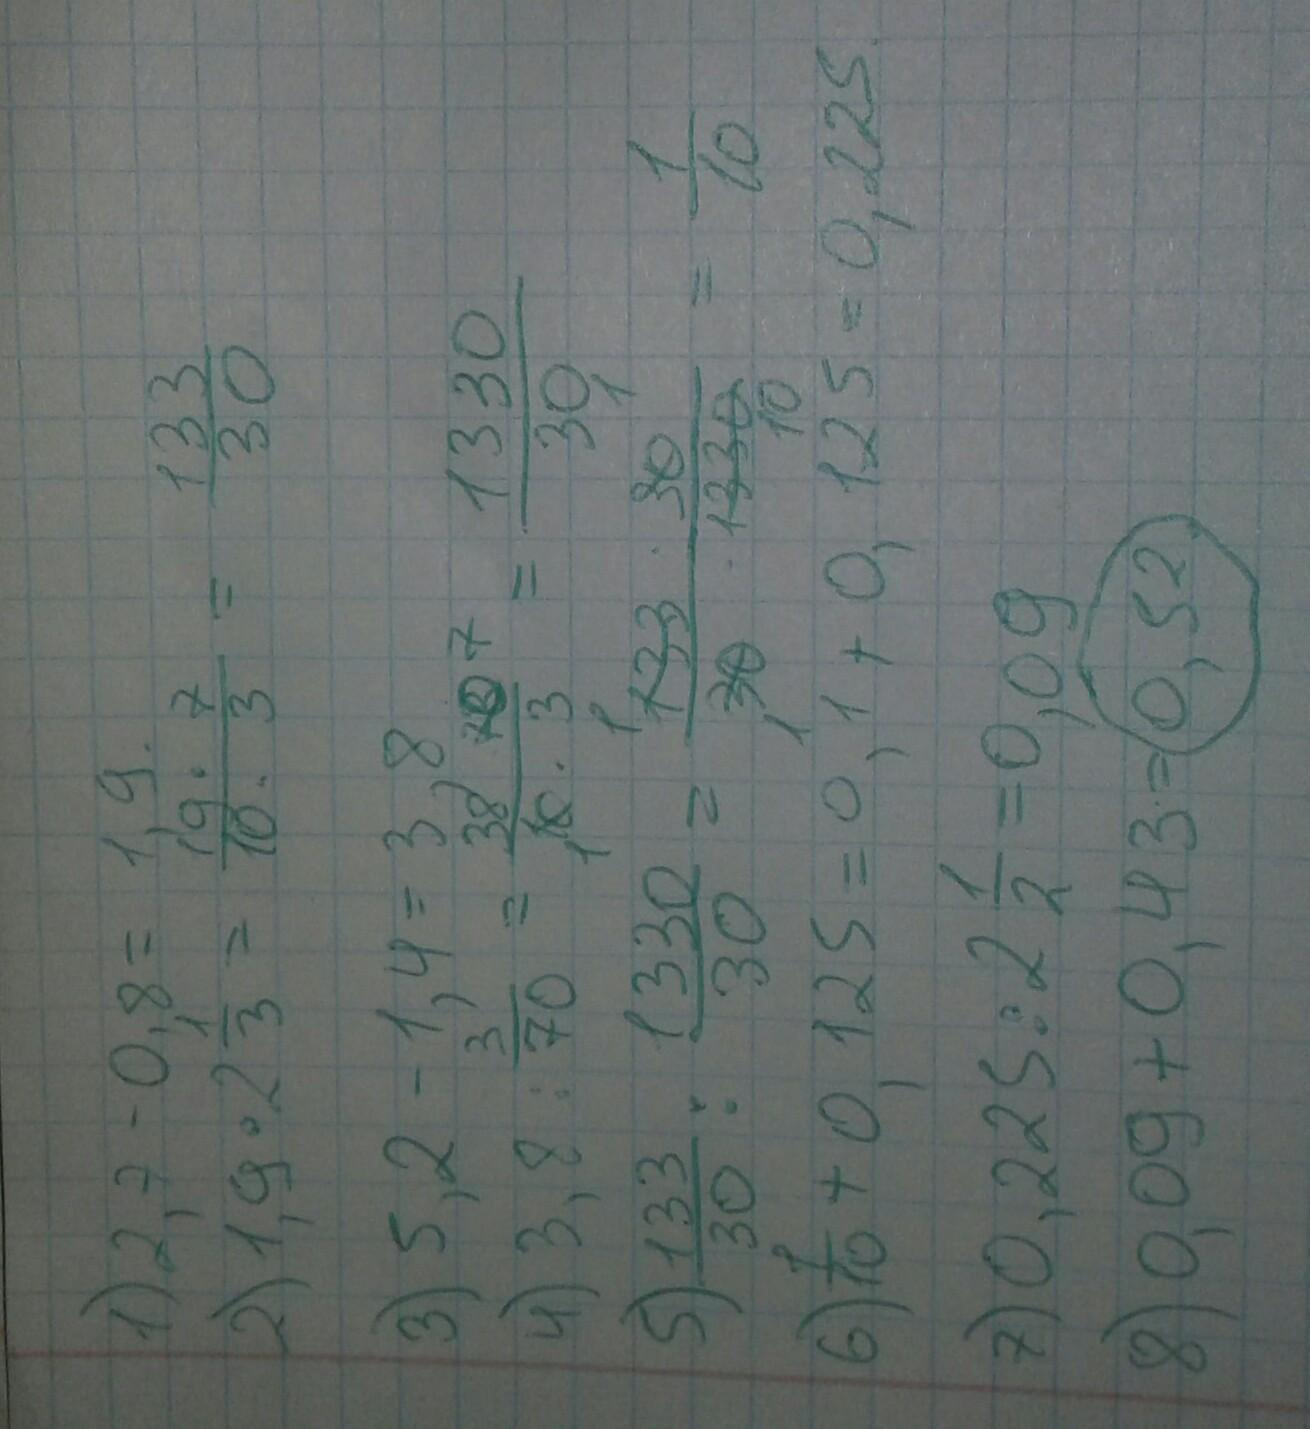 1) 2,7 - 0,8 = 1,9.
2) 1,9 · 2 1/3 = (19 · 7)/(10 · 3) = 133/30
3) 5,2 - 1,4 = 3,8
4) 3,8 : 3/70 = (38 · 70 7)/(10 1 · 3) = 1330/30
5) 133/30 : 1330/30 = (133 1 · 30 1)/(30 1 · 1330 10) = 1/10
6) 1/10 + 0,125 = 0,1 + 0,125 = 0,225.
7) 0,225 : 2 1/2 = 0,09
8) 0,09 + 0,43 = 0,52